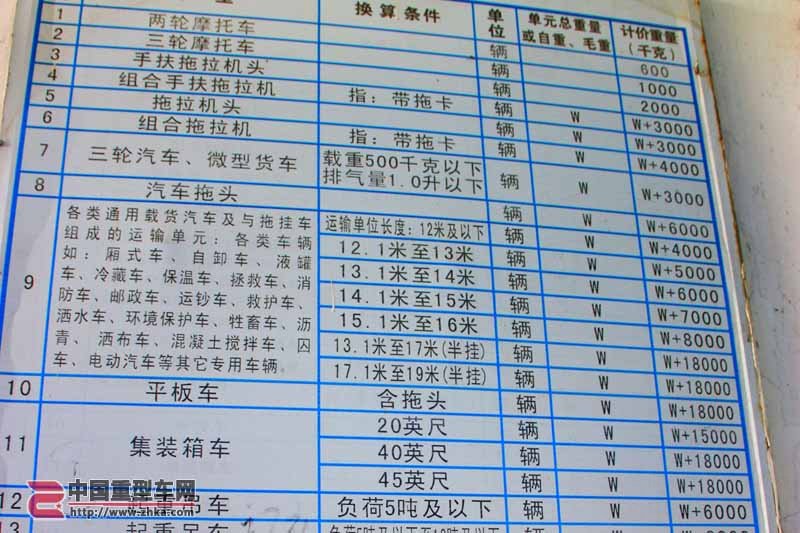 型
换算条件
单位
单元总重量或自重、毛重
计价重量(千克)
1 两轮摩托车 辆 600
2 三轮摩托车 辆 1000
3 手扶拖拉机头 辆 2000
4 组合手扶拖拉机 指：带拖卡 辆 W W+3000
5 拖拉机头 辆 W W+3000
6 组合拖拉机 指：带拖卡 辆 W W+4000
7 三轮汽车、微型货车 载重500千克以下 辆 W W+3000
排气量1.0升以下
8 汽车拖头 辆 W W+6000
9
各类通用载货汽车及与拖挂车
组成的运输单元：各类车辆
如：厢式车、自卸车、液罐
车、冷藏车、保温车、拯救车、消
防车、邮政车、运钞车、救护车、
洒水车、环境保护车、牲畜车、沥
青、洒布车、混凝土搅拌车、囚
车、电动汽车等其它专用车辆。
运输单位长度：12米及以下 辆 W W+4000
12.1米至13米 辆 W W+5000
13.1米至14米 辆 W W+6000
14.1米至15米 辆 W W+7000
15.1米至16米 辆 W W+8000
13.1米至17米(半挂) 辆 W W+18000
17.1米至19米(半挂) 辆 W W+18000
10 平板车 含拖头 辆 W W+18000
11 集装箱车 20英尺 辆 W W+15000
40英尺 辆 W W+18000
45英尺 辆 W W+18000
12 起重吊车 负荷5吨及以下 辆 W W+6000
13 起重吊车 负荷5吨及以下至10吨及以下
中国重型车网
http://www.zhka.com